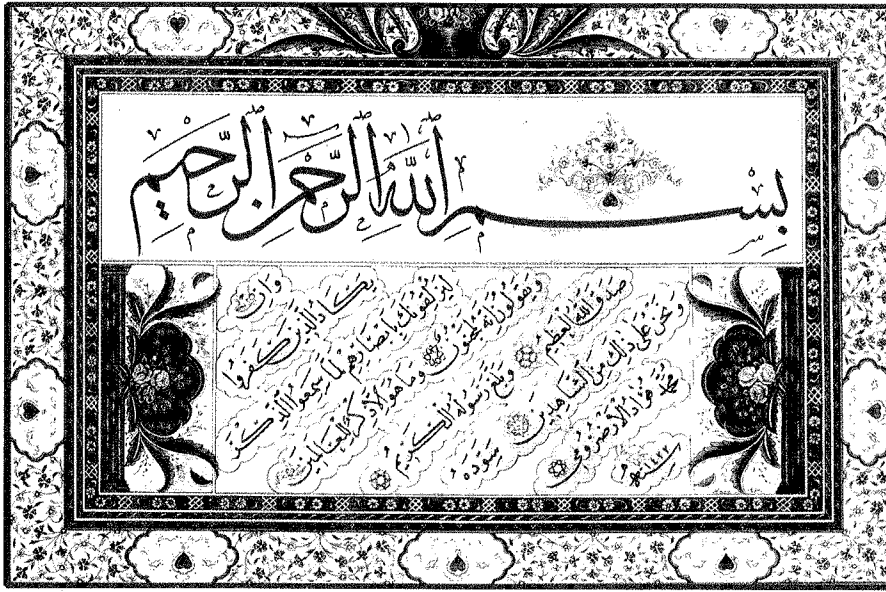 بِسْمِ اللهِ الرَّحْمٰنِ الرَّحِيمِ
وَاِنْ
يَكَادُ الَّذِينَ كَفَرُوا
لَيُزْلِقُونَكَ بِاَبْصَارِهِمْ لَمَّا سَمِعُوا الذِّكْرَ
وَيَقُولُونَ اِنَّهُ لَمَجْنُونٌ وَمَا هُوَ اِلَّا ذِكْرٌ لِلْعَالَمِينَ
صَدَقَ اللهُ الْعَظِيمُ وَبَلَّغَ رَسُولُهُ الْكَرِيمُ
وَنَحْنُ عَلَى ذٰلِكَ مِنَ الشَّاهِدِينَ سَوَّدَهُ
مُحَمَّد جَوَادُ الْاَرْضَرُومِي
سنة ١٤٢٢